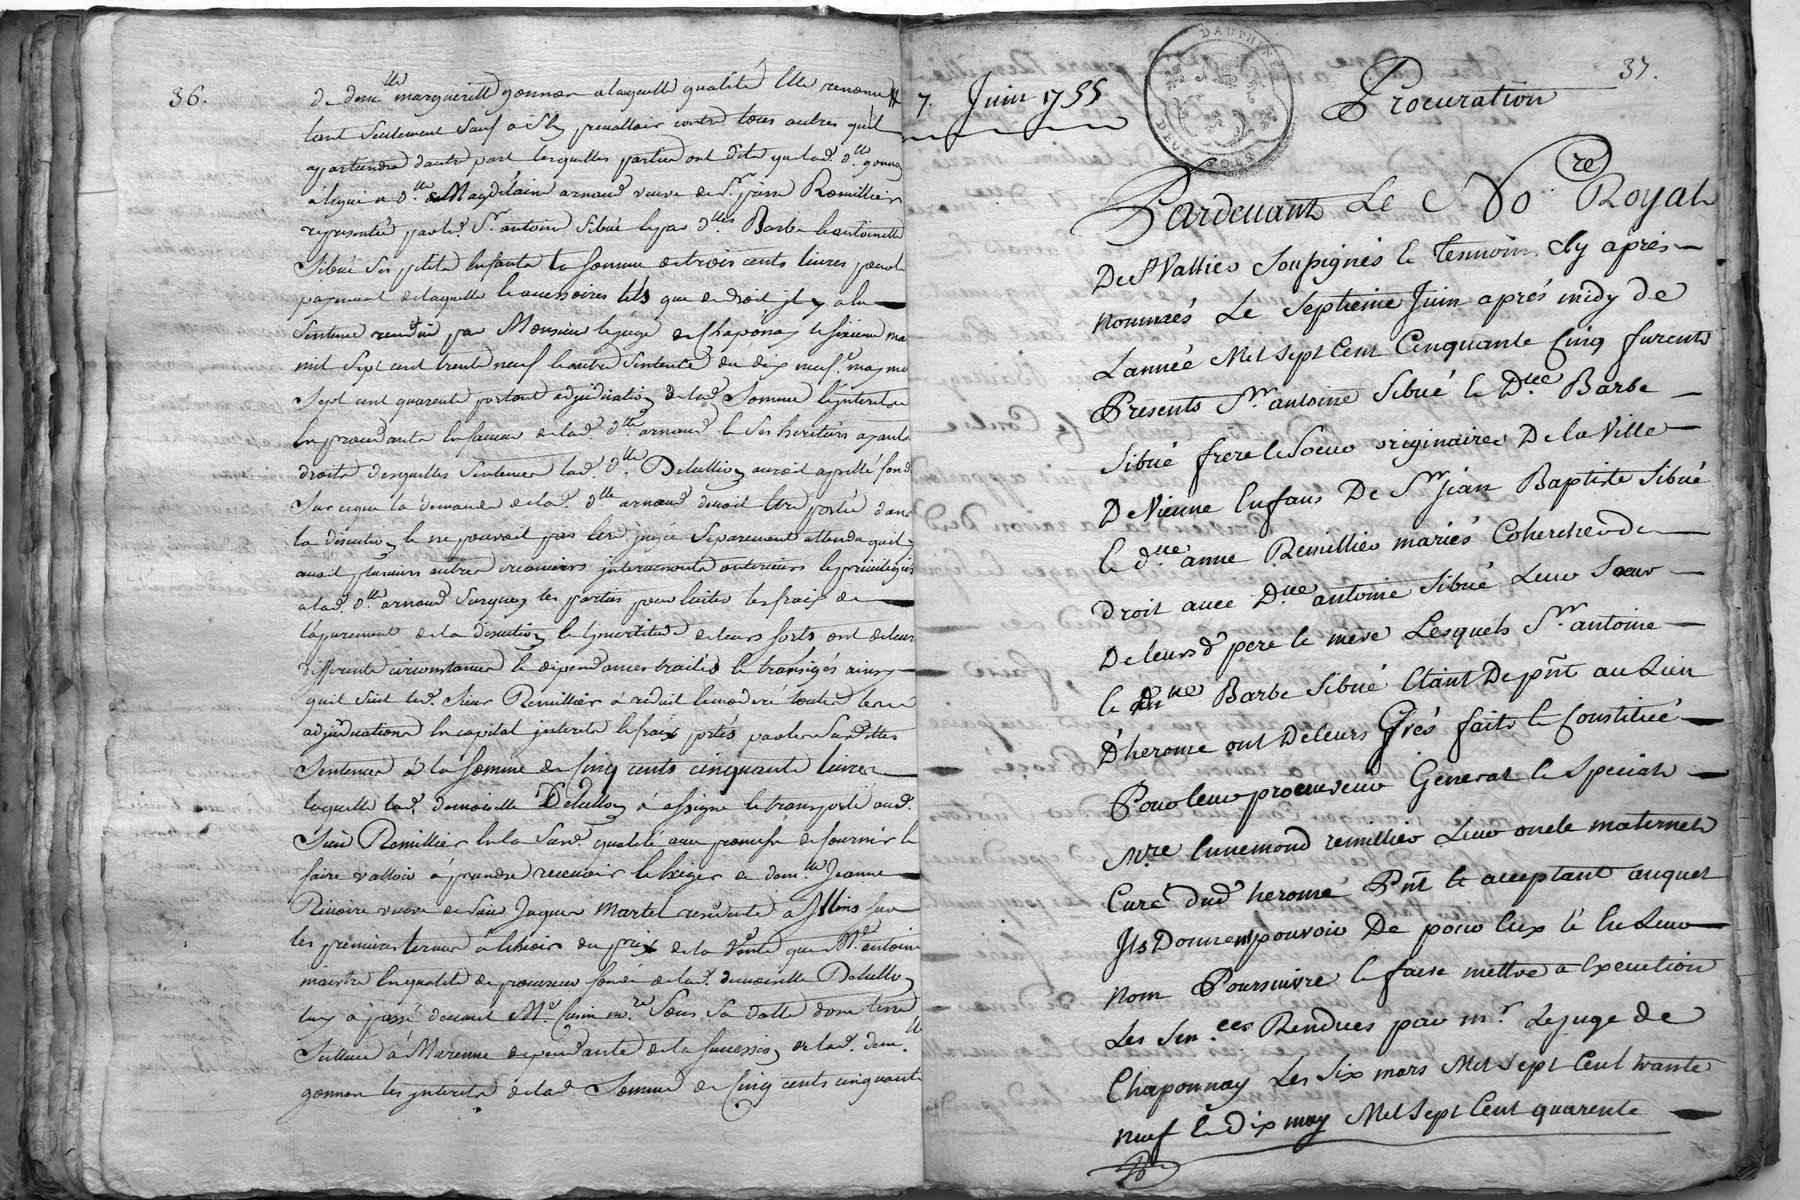 36.
de dem.lle margueritte gonnon a laquelle qualité Elle renonce
tant Seulement Sauf a Sen prevalloir contre tous autres quil
appartiendra dautre part lesquelles parties ont dit que lad. d.lle gonnon
a legué a d.lle Magdelaine arnaud veuve de S.r pierre Remillier
représentée par led. S.r antoine Sibué & par d.lles Barbe & antoinette
Sibué Ses petits Enfants la Somme de trois cents livres pour le
payement de laquelle & accessoires tels que de droit il y a eu
Sentence rendue par Monsieur le juge de Chaponay le sixieme mars
mil Sept cent trente neuf & autre Sentence du dix neuf.e may mil
Sept cent quarente portant adjudication de lad. Somme & interets
En procedants En faveur de lad. d.lle arnaud & Ses heritiers ayants
droits desquelles Sentences lad. d.lle Delullion auroit appellé fondé
Sur ce que la demande de lad. d.lle arnaud devoit Etre portée dans
la discution & ne pouvoit pas Etre jugée Separement attendu quil y
avoit plusieurs autres creanciers intervenants anterieurs & privilegiés
a lad. d.lle arnaud Surquoy les parties pour Eviter les frais de
lapurement de la discution & lincertitude de leurs sorts ont de leurs
differents circonstances & dependances traités & transigés ainsy
quil Suit led. Sieur Remillier a reduit & moderé toutes Les
adjudications En capital interets & frais portés par les Susdittes
Sentences à la Somme de Cinq cents cinquante livres
laquelle lad. demoiselle Delullion a assigné & transporté aud.
Sieur Remillier En la Sus.d qualité avec promesse de fournir &
faire valloir à prendre recevoir & Exiger de dem.lle Jeanne
Rivoire veuve de Sieur Jaques Martel residente a Illins Sur
les premiers termes à Echoir du prix de la Vente que M.e antoine
maistre En qualité de procureur fondé de lad. demoiselle Delullion
luy a passé devant M.e Cusin n.re Sous Sa datte dune terre
Scituée à Marenne dependante de la Succession de lad. dem.lle
gonnon les interets de lad. Somme de Cinq cents cinquante
7. Juin 1755
DAUPHINÉ
DEUX SOLS
Procuration
37.
Pardevant Le No.re Royal
De St Vallier Soussignés & Temoins Cy aprés
nommés Le Septieme Juin aprés midy de
L'année Mil Sept Cent Cinquante Cinq furent
Presents S.r antoine Sibué & D.lle Barbe
Sibué frere & Soeur originaires De la Ville
De Vienne Enfans De S.r Jean Baptiste Sibué
& d.lle anne Remillier mariés Coheritiers de
droit avec D.lle antoine Sibué Leur Soeur
De leursd pere & mere Lesquels S.r antoine
& D.lle Barbe Sibué Etant De pñt au Lieu
D'herome ont De leurs Grés faits & Constitué
Pour leur procureur General & Special
M.re Ennemond remillier Leur oncle maternel
Curé dud herome Pñt & acceptant auquel
Ils Donnent pouvoir De pour Eux & En Leur
nom Poursuivre & faire mettre a Execution
Les Sen.ces Rendues par m.r Le Juge de
Chaponnay Les Six mars Mil Sept Cent trante
neuf & Dix may Mil Sept Cent quarente